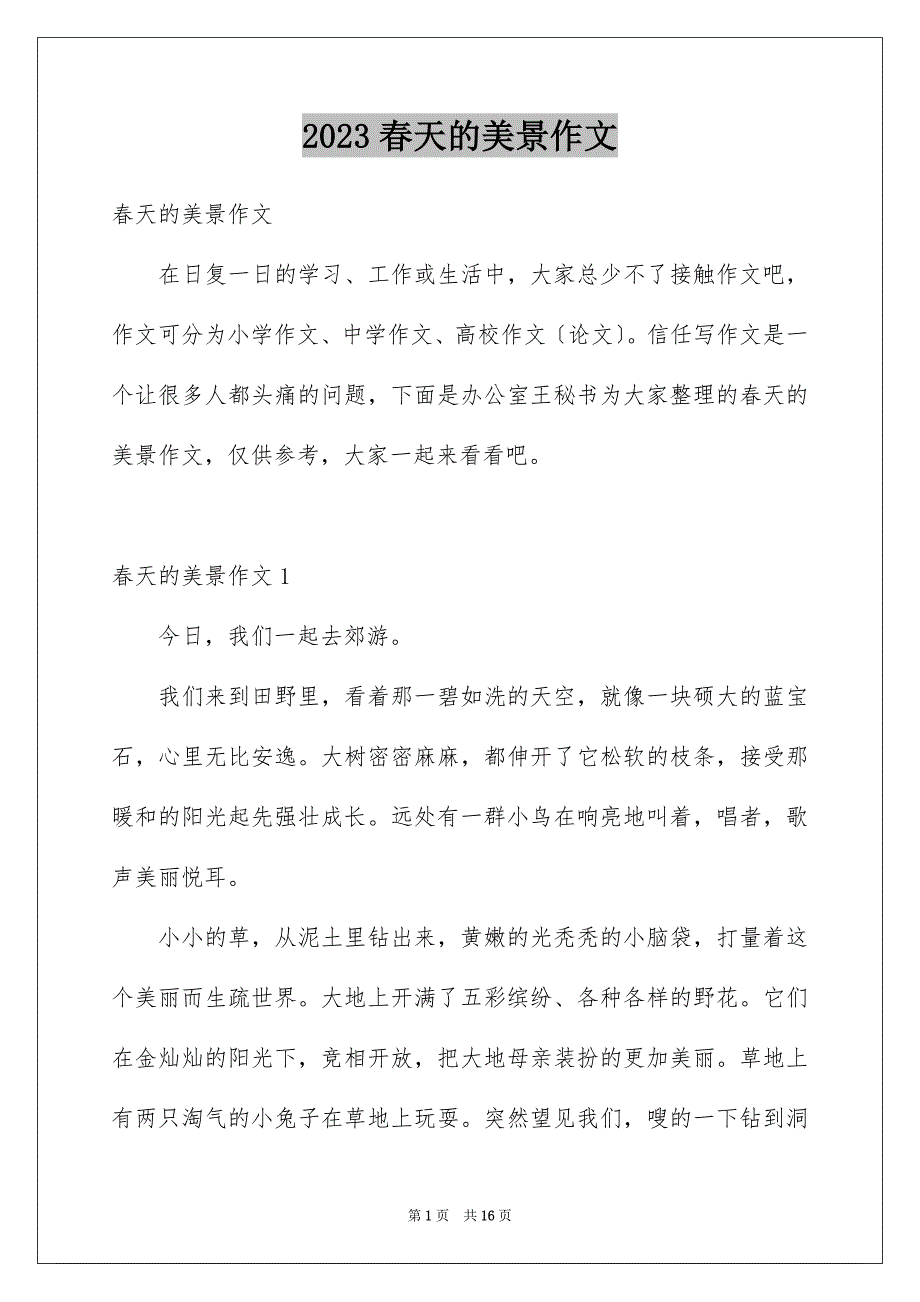 2023春天的美景作文
春天的美景作文
在日复一日的学习、工作或生活中，大家总少不了接触作文吧，
作文可分为小学作文、中学作文、高校作文〔论文〕。信任写作文是一
个让很多人都头痛的问题，下面是办公室王秘书为大家整理的春天的
美景作文，仅供参考，大家一起来看看吧。
春天的美景作文1
今日，我们一起去郊游。
我们来到田野里，看着那一碧如洗的天空，就像一块硕大的蓝宝
石，心里无比安逸。大树密密麻麻，都伸开了它松软的枝条，接受那
暖和的阳光起先强壮成长。远处有一群小鸟在响亮地叫着，唱者，歌
声美丽悦耳。
小小的草，从泥土里钻出来，黄嫩的光秃秃的小脑袋，打量着这
个美丽而生疏世界。大地上开满了五彩缤纷、各种各样的野花。它们
在金灿灿的阳光下，竞相开放，把大地母亲装扮的更加美丽。草地上
有两只淘气的小兔子在草地上玩耍。突然望见我们，嗖的一下钻到洞
第1页 共16页